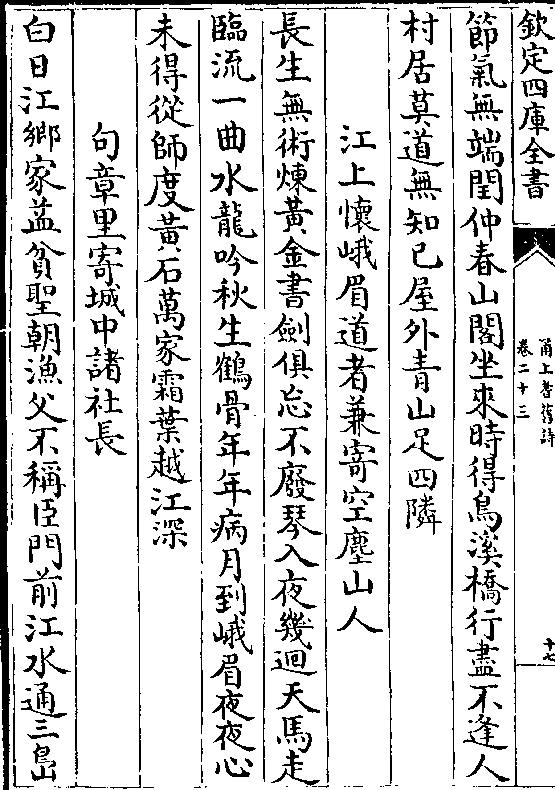 欽定四庫全書
甬上耆舊詩
卷二十三
十七
節氣無端閏仲春山閣坐來時得鳥溪橋行盡不逢人
村居莫道無知已屋外青山足四隣
江上懷峨眉道者兼寄空塵山人
長生無術煉黃金書劍俱忘不廢琴入夜幾迴天馬走
臨流一曲水龍吟秋生鶴骨年年病月到峨眉夜夜心
未得從師度黃石萬家霜葉越江深
句章里寄城中諸社長
白日江鄉家益貧聖朝漁父不稱臣門前江水通三島